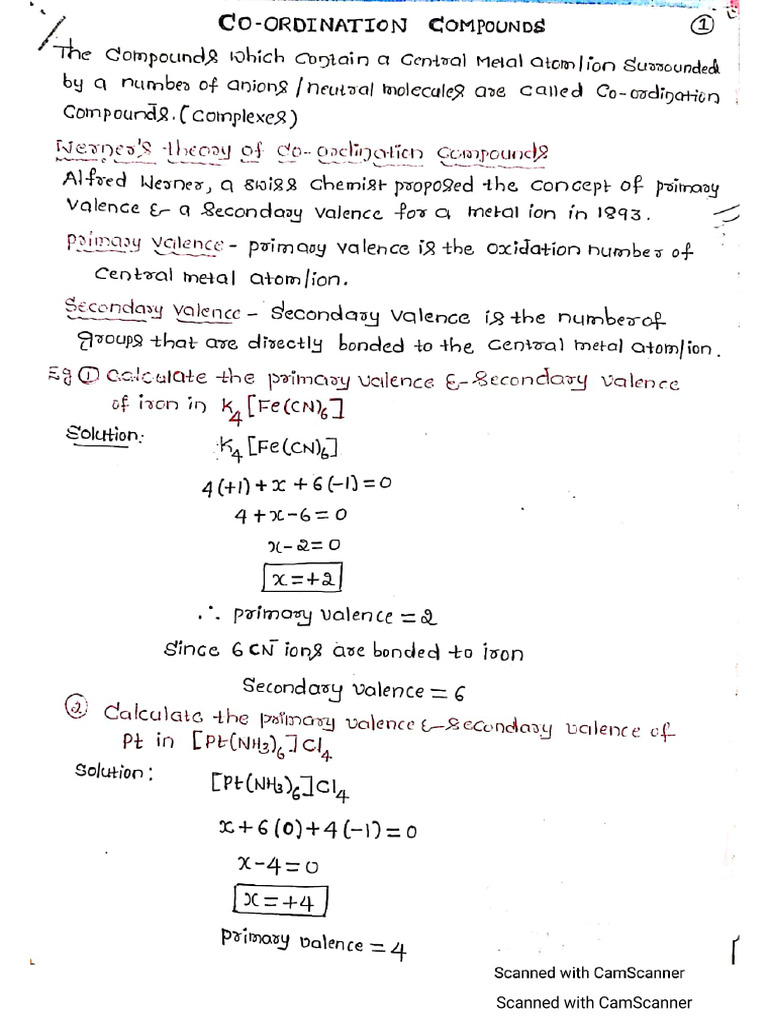 CO-ORDINATION COMPOUNDS
1
The Compounds which contain a Central Metal atom/ion surrounded
by a number of anions/neutral molecules are called Co-ordination
Compounds. (Complexes)
Werner's theory of Co-ordination Compounds
Alfred Werner, a swiss chemist proposed the concept of primary
valence & a Secondary valence for a metal ion in 1893.
Primary valence - primary valence is the oxidation number of
Central metal atom/ion.
Secondary valence - Secondary valence is the number of
groups that are directly bonded to the central metal atom/ion.
Eg ① Calculate the primary valence & Secondary valence
of iron in K₄[Fe(CN)₆]
Solution:
K₄[Fe(CN)₆]
4(+1)+x+6(-1)=0
4+x-6=0
x-2=0
x=+2
∴ primary valence = 2
Since 6 CN⁻ ions are bonded to iron
Secondary valence = 6
② Calculate the primary valence & Secondary valence of
Pt in [Pt(NH₃)₆]Cl₄
Solution:
[Pt(NH₃)₆]Cl₄
x+6(0)+4(-1)=0
x-4=0
x=+4
primary valence = 4
Scanned with CamScanner
Scanned with CamScanner